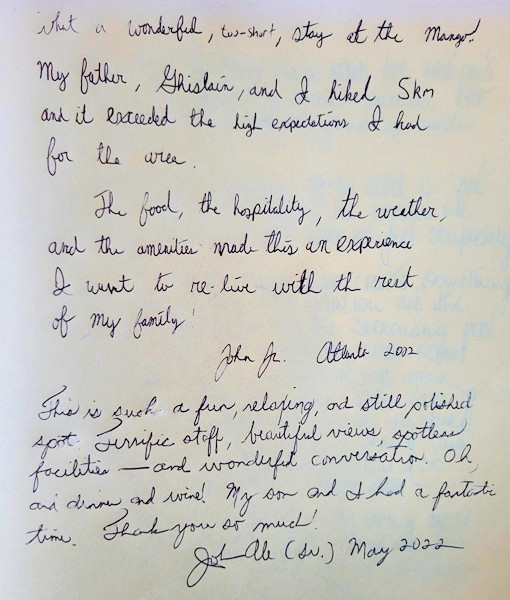 what a wonderful, too-short, stay at the Mango!
My father, Ghislain, and I hiked 5km
and it exceeded the high expectations I had
for the area.
The food, the hospitality, the weather,
and the amenities made this an experience
I want to re-live with th rest
of my family!
John Jr. Atlanta 2022
This is such a fun, relaxing, and still polished
spot. Terrific staff, beautiful views, spotless
facilities — and wonderful conversation. Oh,
and dinner and wine! My son and I had a fantastic
time. Thank you so much!
John (Sr.) May 2022